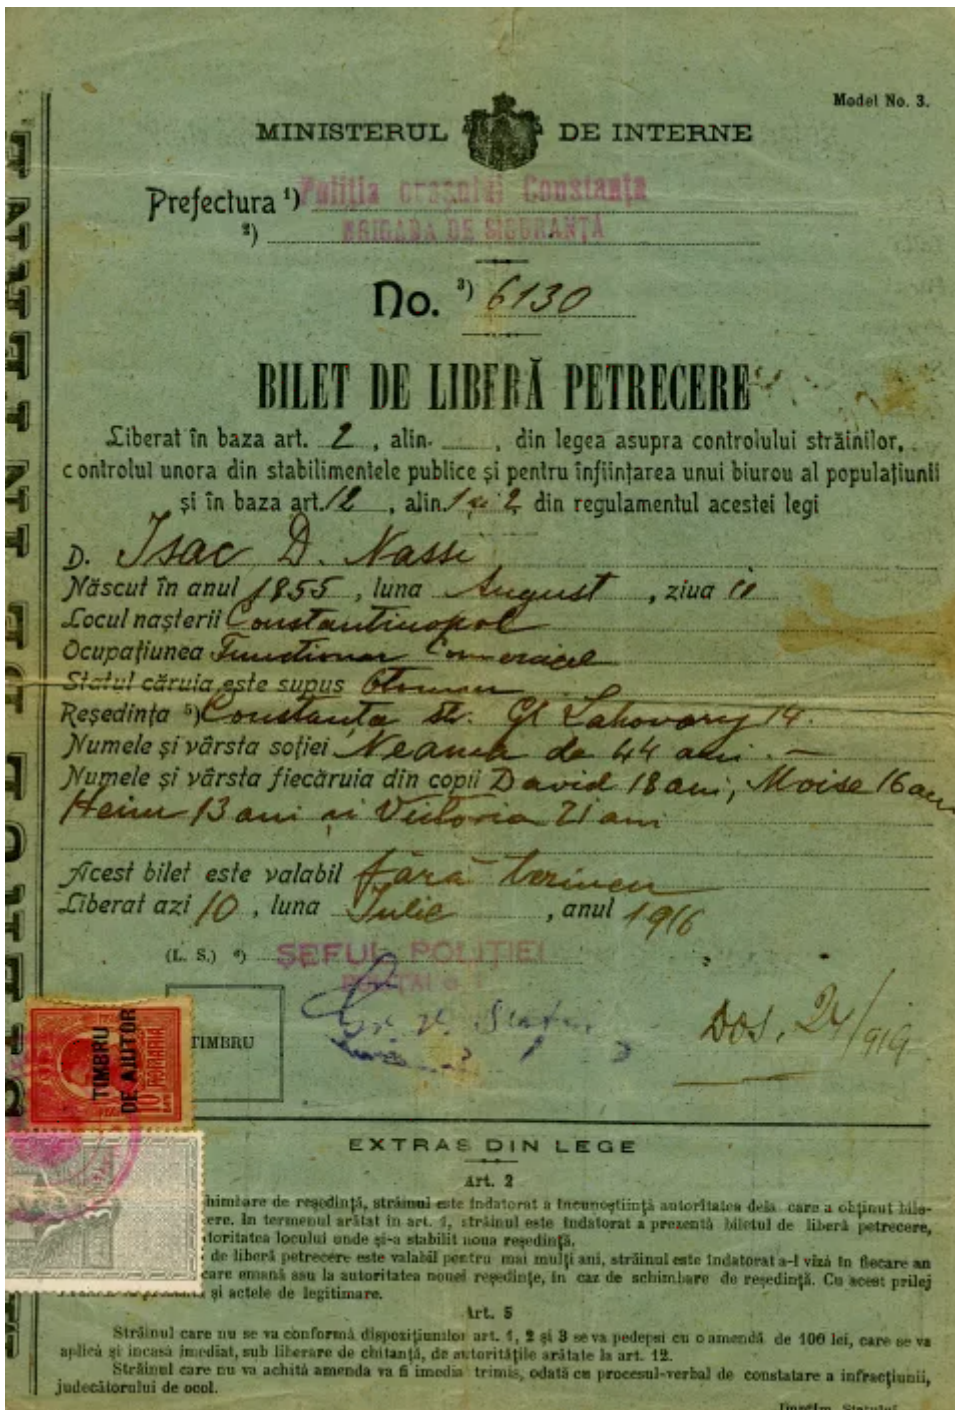 Model No. 3.
MINISTERUL DE INTERNE
Prefectura ¹) Poliția orașului Constanța
²) BRIGADA DE SIGURANȚĂ
No. ³) 6130
BILET DE LIBERĂ PETRECERE
Liberat în baza art. 2, alin. , din legea asupra controlului străinilor,
controlul unora din stabilimentele publice și pentru înființarea unui biurou al populațiunii
și în baza art. 12, alin. 1 și 2 din regulamentul acestei legi
D. Isac D. Nassi
Născut în anul 1855, luna August, ziua
Locul nașterii Constantinopol
Ocupațiunea Functionar Comercial
Statul căruia este supus Otoman
Reședința ⁵) Constanța str. Gl Lahovary 14.
Numele și vârsta soției Neama de 44 ani. —
Numele și vârsta fiecăruia din copii David 18 ani, Moise 16 ani
Heim 13 ani și Victoria 21 ani
Acest bilet este valabil fără termen
Liberat azi 10, luna Iulie, anul 1916
(L. S.) ⁴) ȘEFUL POLIȚIEI
TIMBRU
Dos. 24/919
TIMBRU
DE AJUTOR
10 BANI
ROMANIA
EXTRAS DIN LEGE
Art. 2
himbare de reședință, străinul este îndatorat a încunoștiință autoritatea dela care a obținut bile-
ere. In termenul arătat în art. 1, străinul este îndatorat a prezentă biletul de liberă petrecere,
toritatea locului unde și-a stabilit noua reședință.
de liberă petrecere este valabil pentru mai mulți ani, străinul este îndatorat a-l viză în fiecare an
care emană sau la autoritatea nouei reședințe, în caz de schimbare de reședință. Cu acest prilej
și actele de legitimare.
Art. 5
Străinul care nu se va conformă dispozițiunilor art. 1, 2 și 3 se va pedepsi cu o amendă de 100 lei, care se va
aplică și incasă imediat, sub liberare de chitanță, de autoritățile arătate la art. 12.
Străinul care nu va achită amenda va fi imedia trimis, odată cu procesul-verbal de constatare a infracțiunii,
judecătorului de ocol.